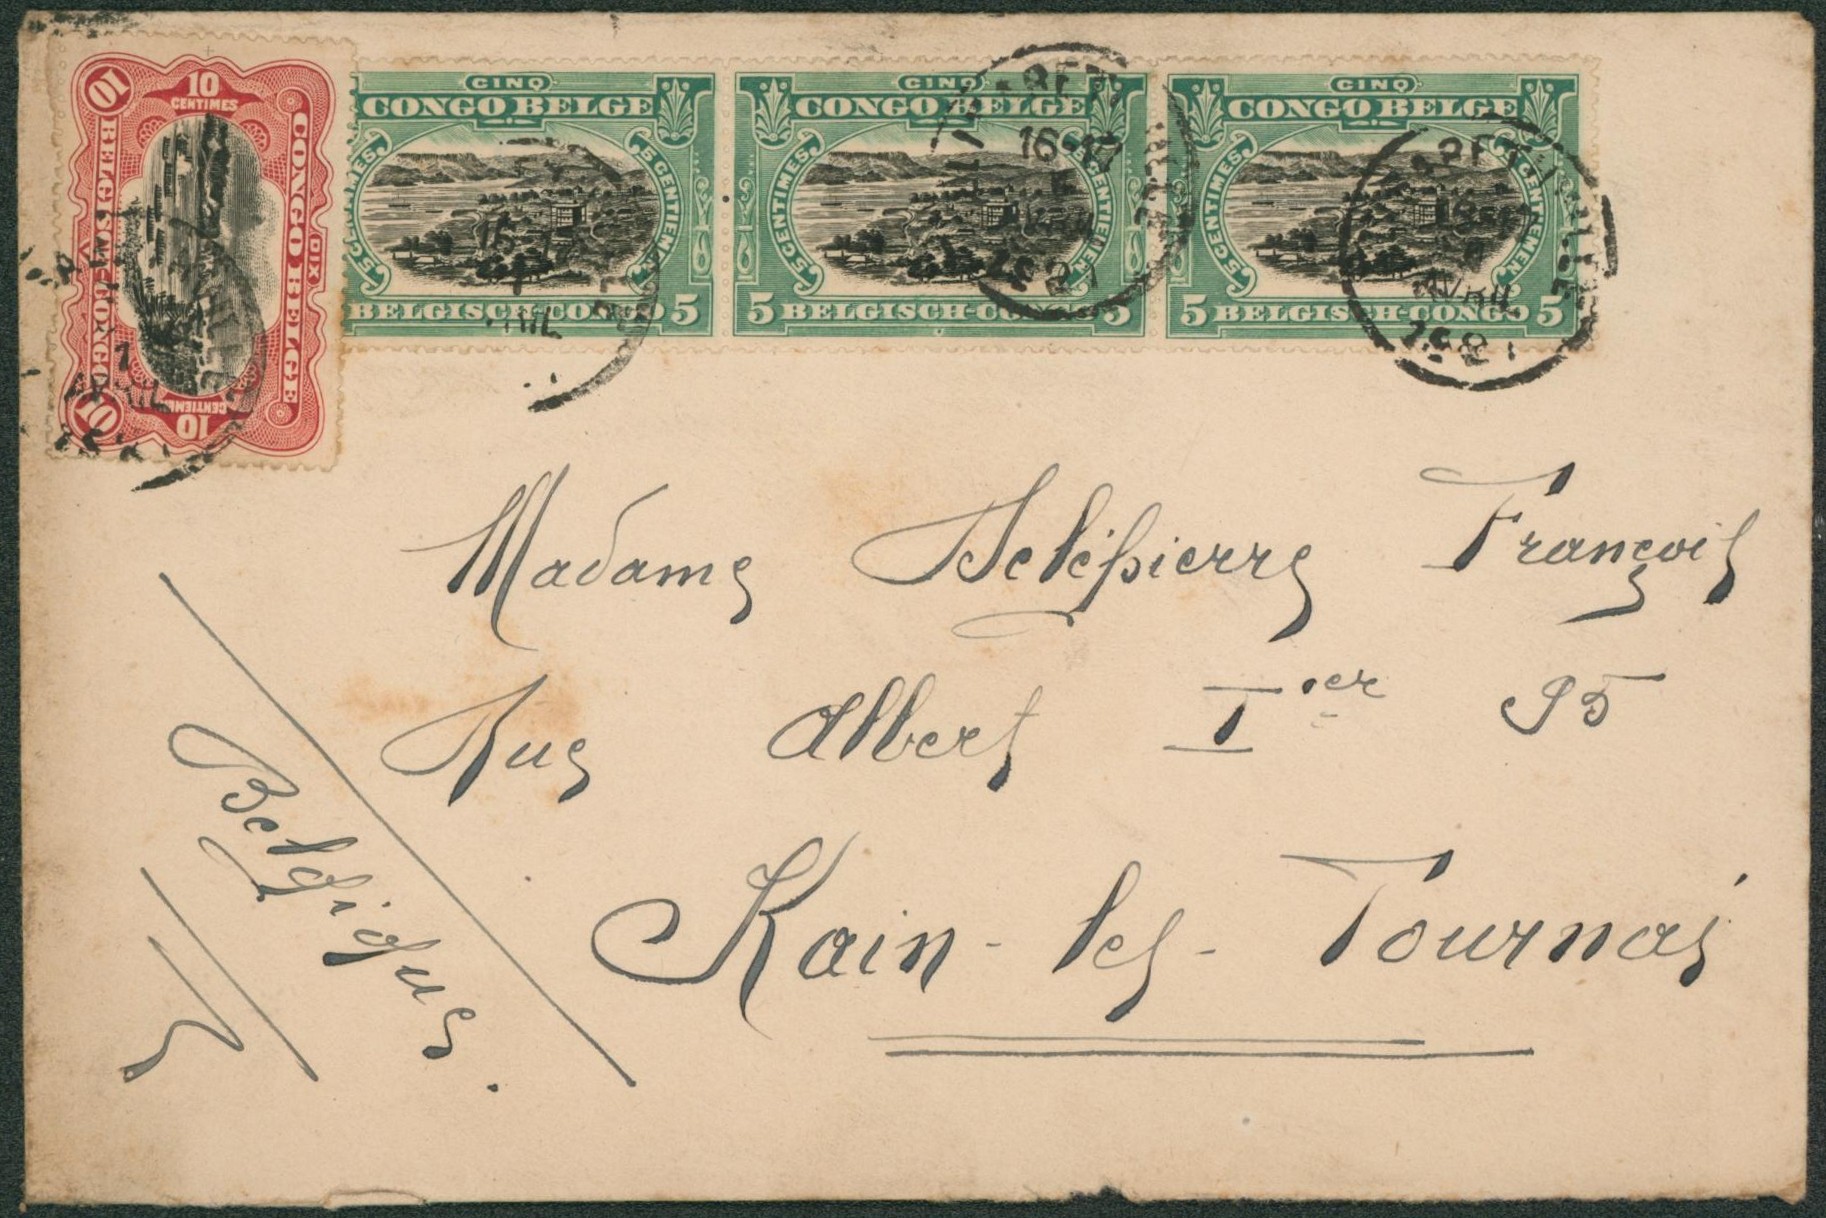 10
CENTIMES
CONGO BELGE
DIX
BELGISCH-CONGO
10
10
10
CENTIEMEN
CINQ
CONGO BELGE
5 CENTIEMEN
BELGISCH-CONGO 5
CINQ
CONGO BELGE
5 CENTIMES
5 CENTIEMEN
5 BELGISCH-CONGO 5
16-17
CINQ
CONGO BELGE
5 CENTIMES
5 CENTIEMEN
5 BELGISCH-CONGO 5
AVRIL
Madame Delépierre François
Rue Albert Ier 95
Kain-les-Tournai
Belgique.